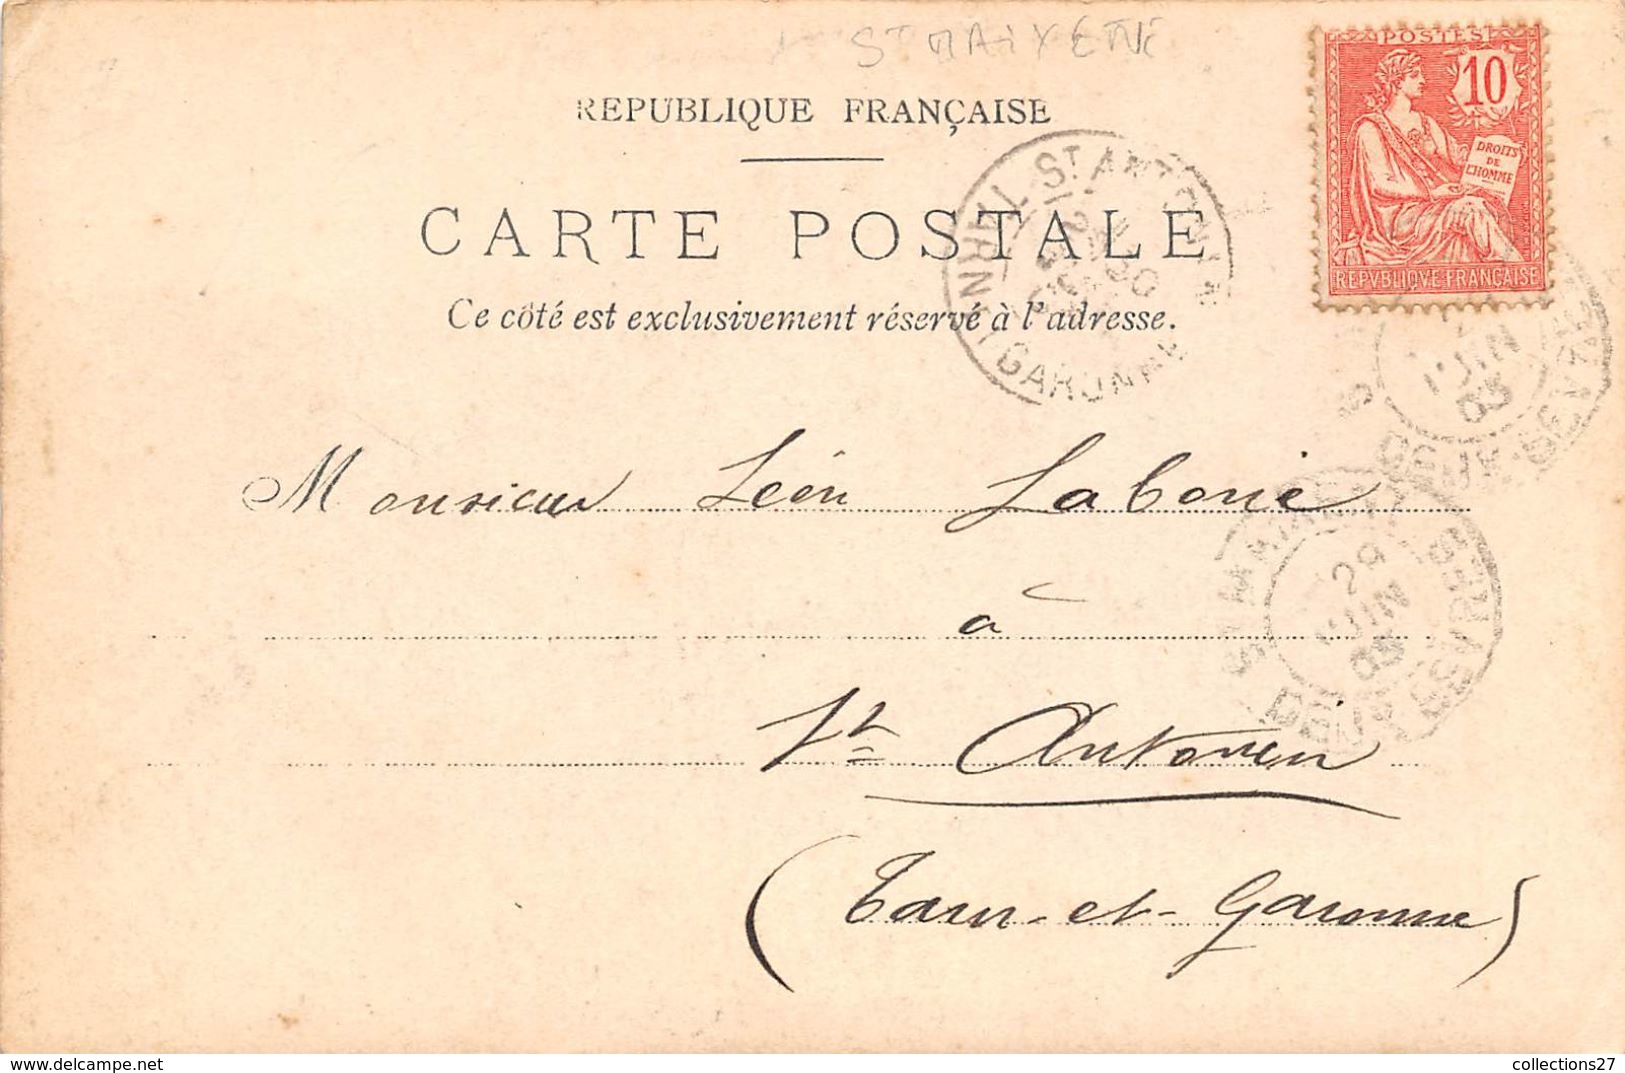 ST MAIXENT
POSTES
10
DROITS
DE
L'HOMME
REPVBLIQVE FRANÇAISE
REPUBLIQUE FRANÇAISE
CARTE POSTALE
Ce côté est exclusivement réservé à l'adresse.
ST ANTONIN
TARN GARONNE
JUIN
03
29
JUIN
03
Monsieur Léon Laborie
à
St Antonin
(Tarn-et-Garonne)
www.delcampe.net
collections27